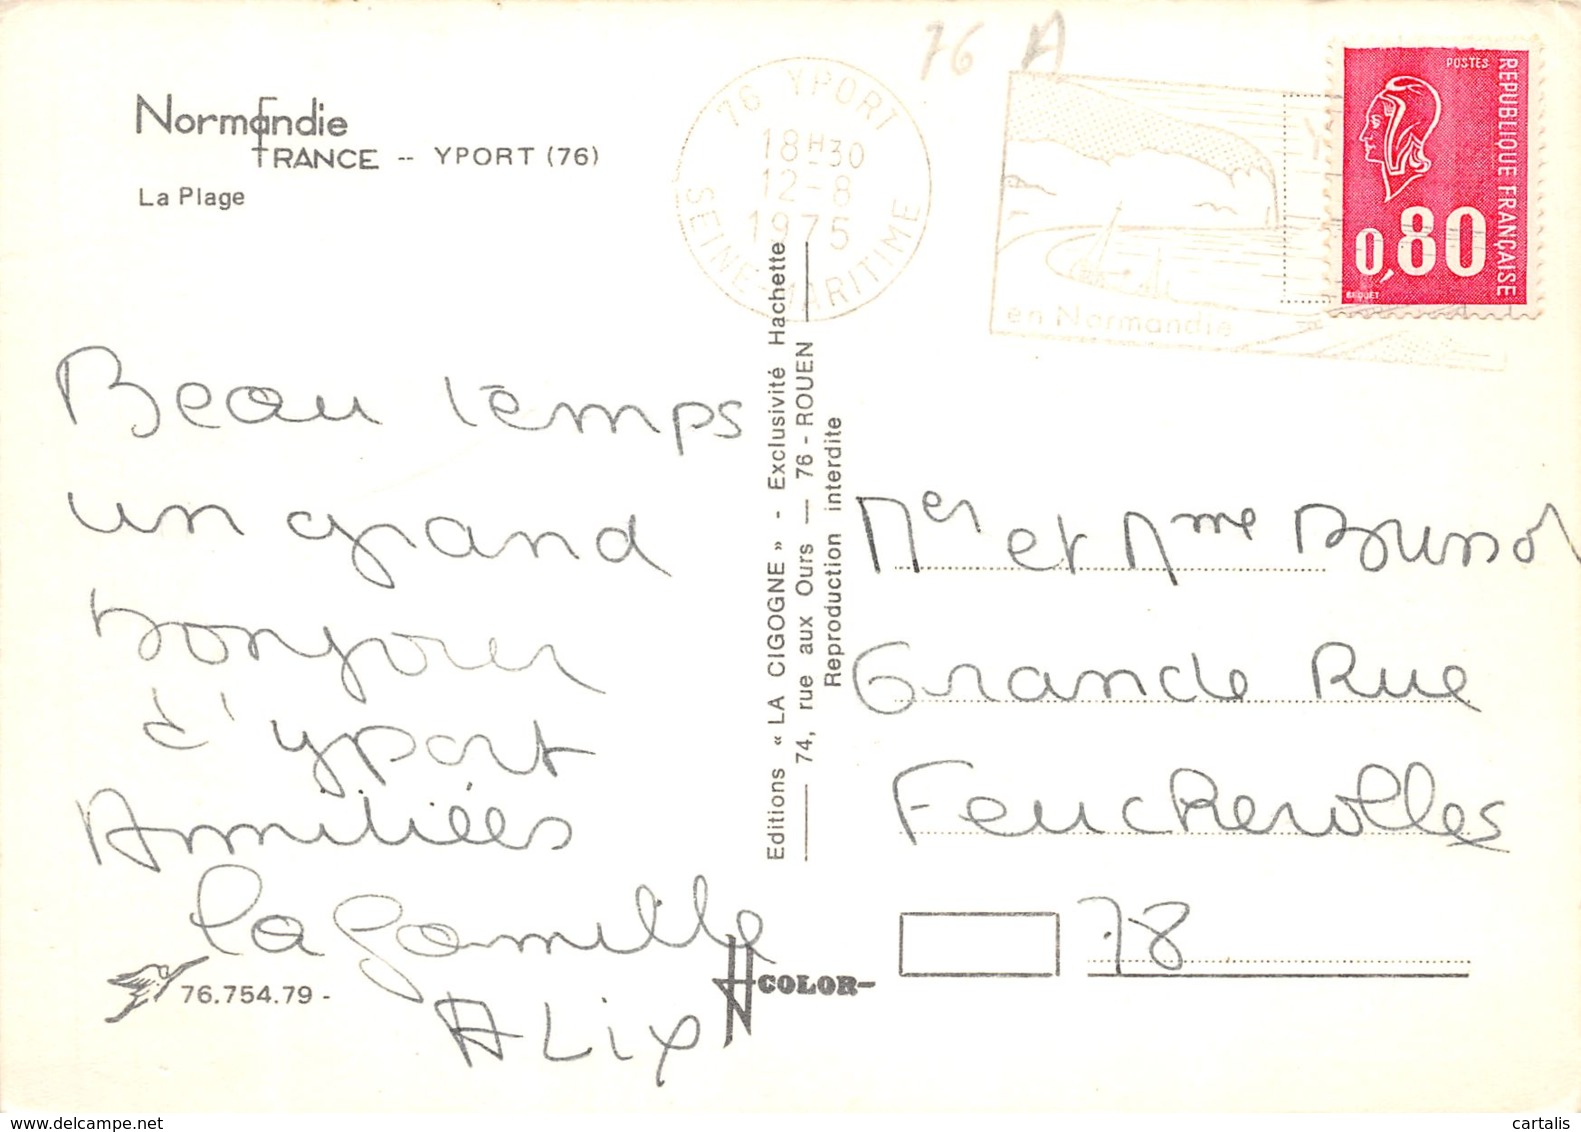 76 A
Normandie
FRANCE -- YPORT (76)
La Plage
76 YPORT
18H30
12-8
1975
SEINE-MARITIME
en Normandie
POSTES
REPUBLIQUE FRANÇAISE
0,80
BEQUET
Beau temps
un grand
bonjour
d'yport
Amitiées
la famille
ALix
Editions « LA CIGOGNE » - Exclusivité Hachette
74, rue aux Ours — 76 - ROUEN
Reproduction interdite
Mer et Mme
Grande Rue
Feucherolles
78
76.754.79 -
COLOR-
cartalis